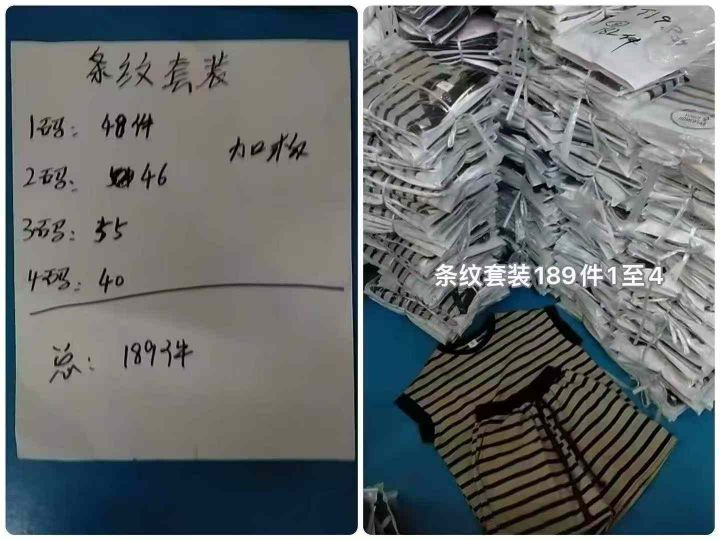 条纹套装
1码: 48件
加松
2码: 46
3码: 55
4码: 40
总: 189件
条纹套装189件1至4